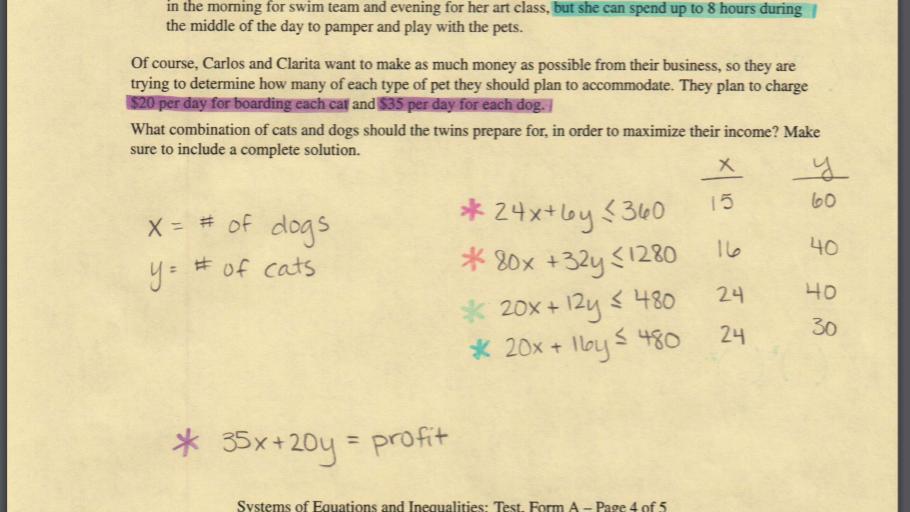 in the morning for swim team and evening for her art class, but she can spend up to 8 hours during
the middle of the day to pamper and play with the pets.
Of course, Carlos and Clarita want to make as much money as possible from their business, so they are
trying to determine how many of each type of pet they should plan to accommodate. They plan to charge
$20 per day for boarding each cat and $35 per day for each dog.
What combination of cats and dogs should the twins prepare for, in order to maximize their income? Make
sure to include a complete solution.
x y
x = # of dogs
y = # of cats
* 24x+6y ≤ 360 15 60
* 80x + 32y ≤ 1280 16 40
* 20x + 12y ≤ 480 24 40
* 20x + 16y ≤ 480 24 30
* 35x+20y = profit
Systems of Equations and Inequalities: Test, Form A – Page 4 of 5